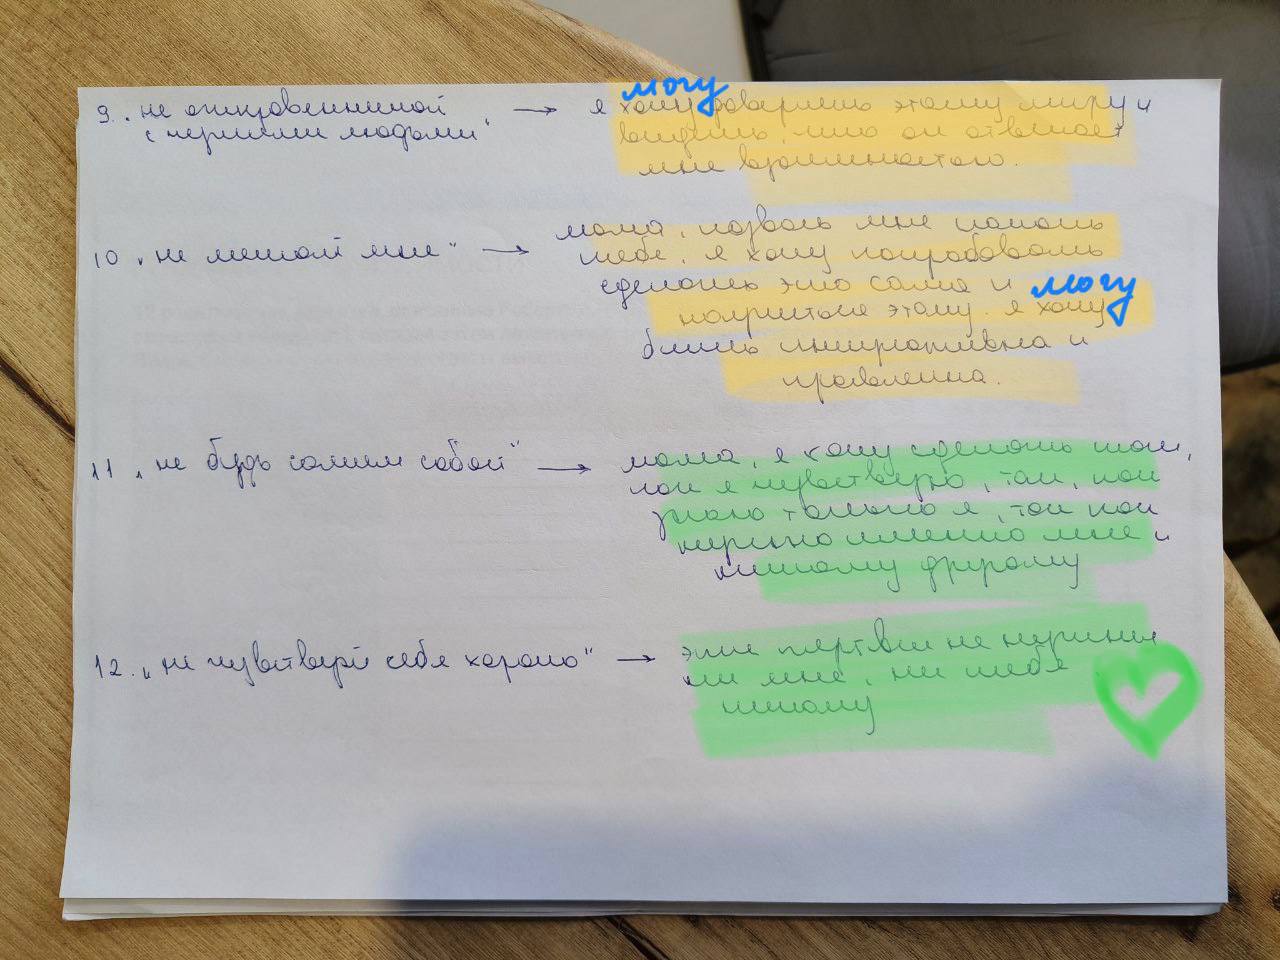 могу
9. „не откровенничай → я хочу доверять этому миру и
с чужими людьми“ видеть, что он отвечает
мне взаимностью.
10 „не мешай мне“ → мама, позволь мне помочь
тебе, я хочу попробовать
сделать это сама и могу
научиться этому. я хочу
быть инициативна и
проявлена.
11 „не будь самим собой“ → мама, я хочу сделать так,
как я чувствую, так, как
знаю только я, так как
нужно именно мне и
никому другому
12. „не чувствуй себя хорошо“ → эти жертвы не нужны
ни мне, ни тебе
никому